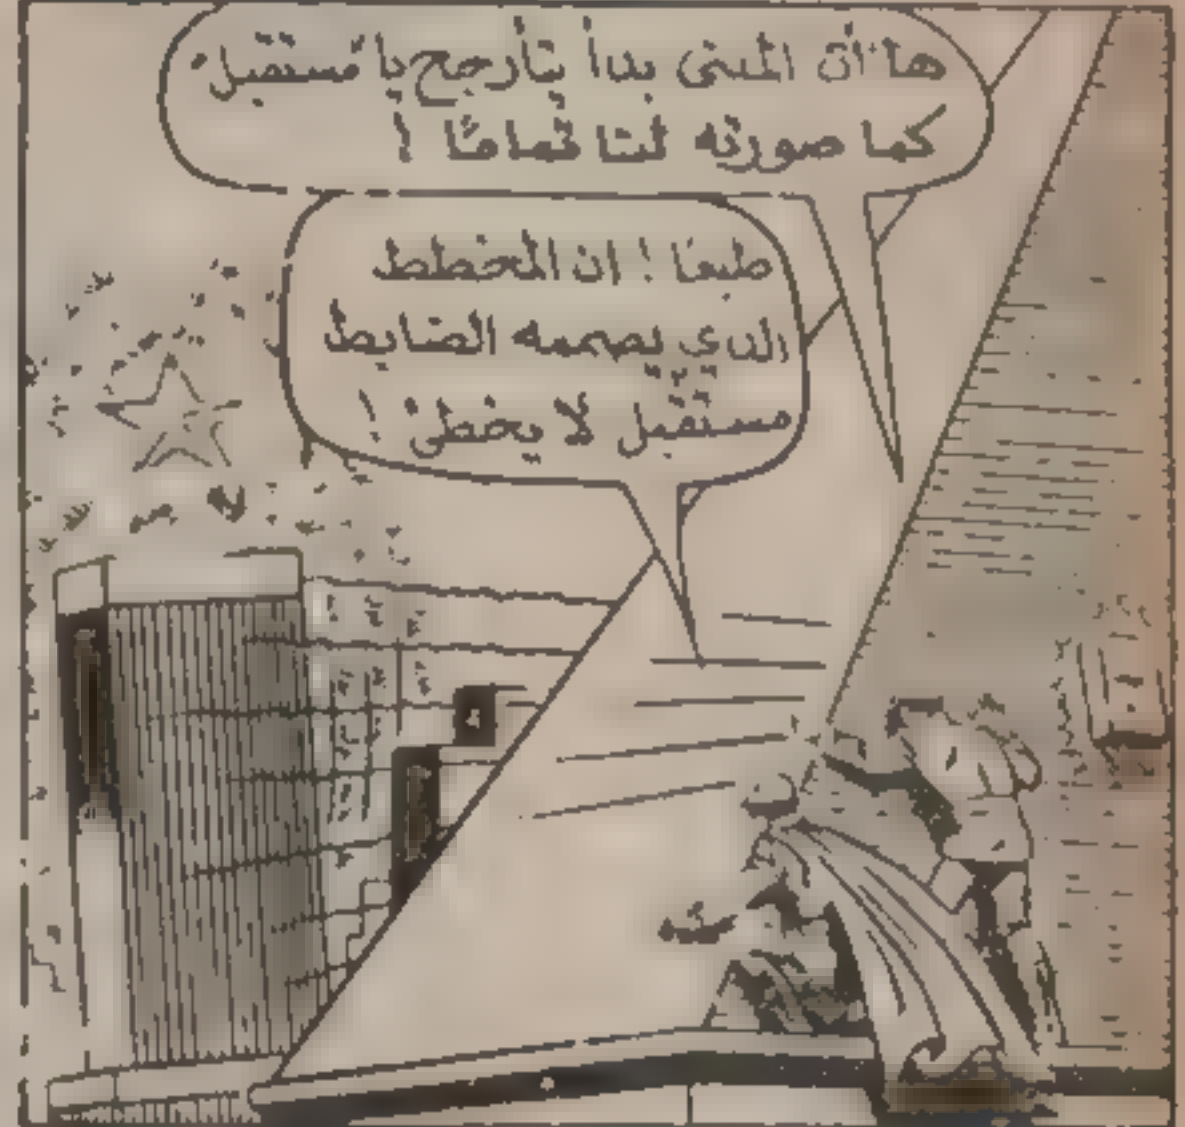 ها أن المبنى بدأ يتأرجح يا مستقبل
كما صورته لنا تمامًا !
طبعًا ! ان المخطط
الذي يصممه الضابط
مستقبل لا يخطئ !